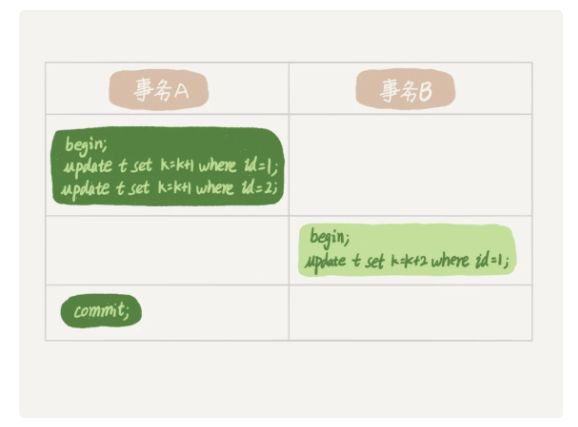 事务A
事务B
begin;
update t set k=k+1 where id=1;
update t set k=k+1 where id=2;
begin;
update t set k=k+2 where id=1;
commit;